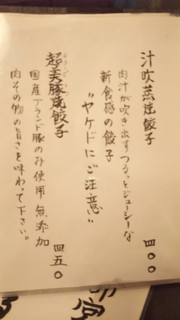 汁吹蒸焼餃子 四〇〇
肉汁が吹き出すつるっとジューシーな
新食感の餃子
"ヤケドにご注意"
超美豚焼餃子 四五〇
国産ブランド豚のみ使用 無添加
肉その物の旨さを味わって下さい。